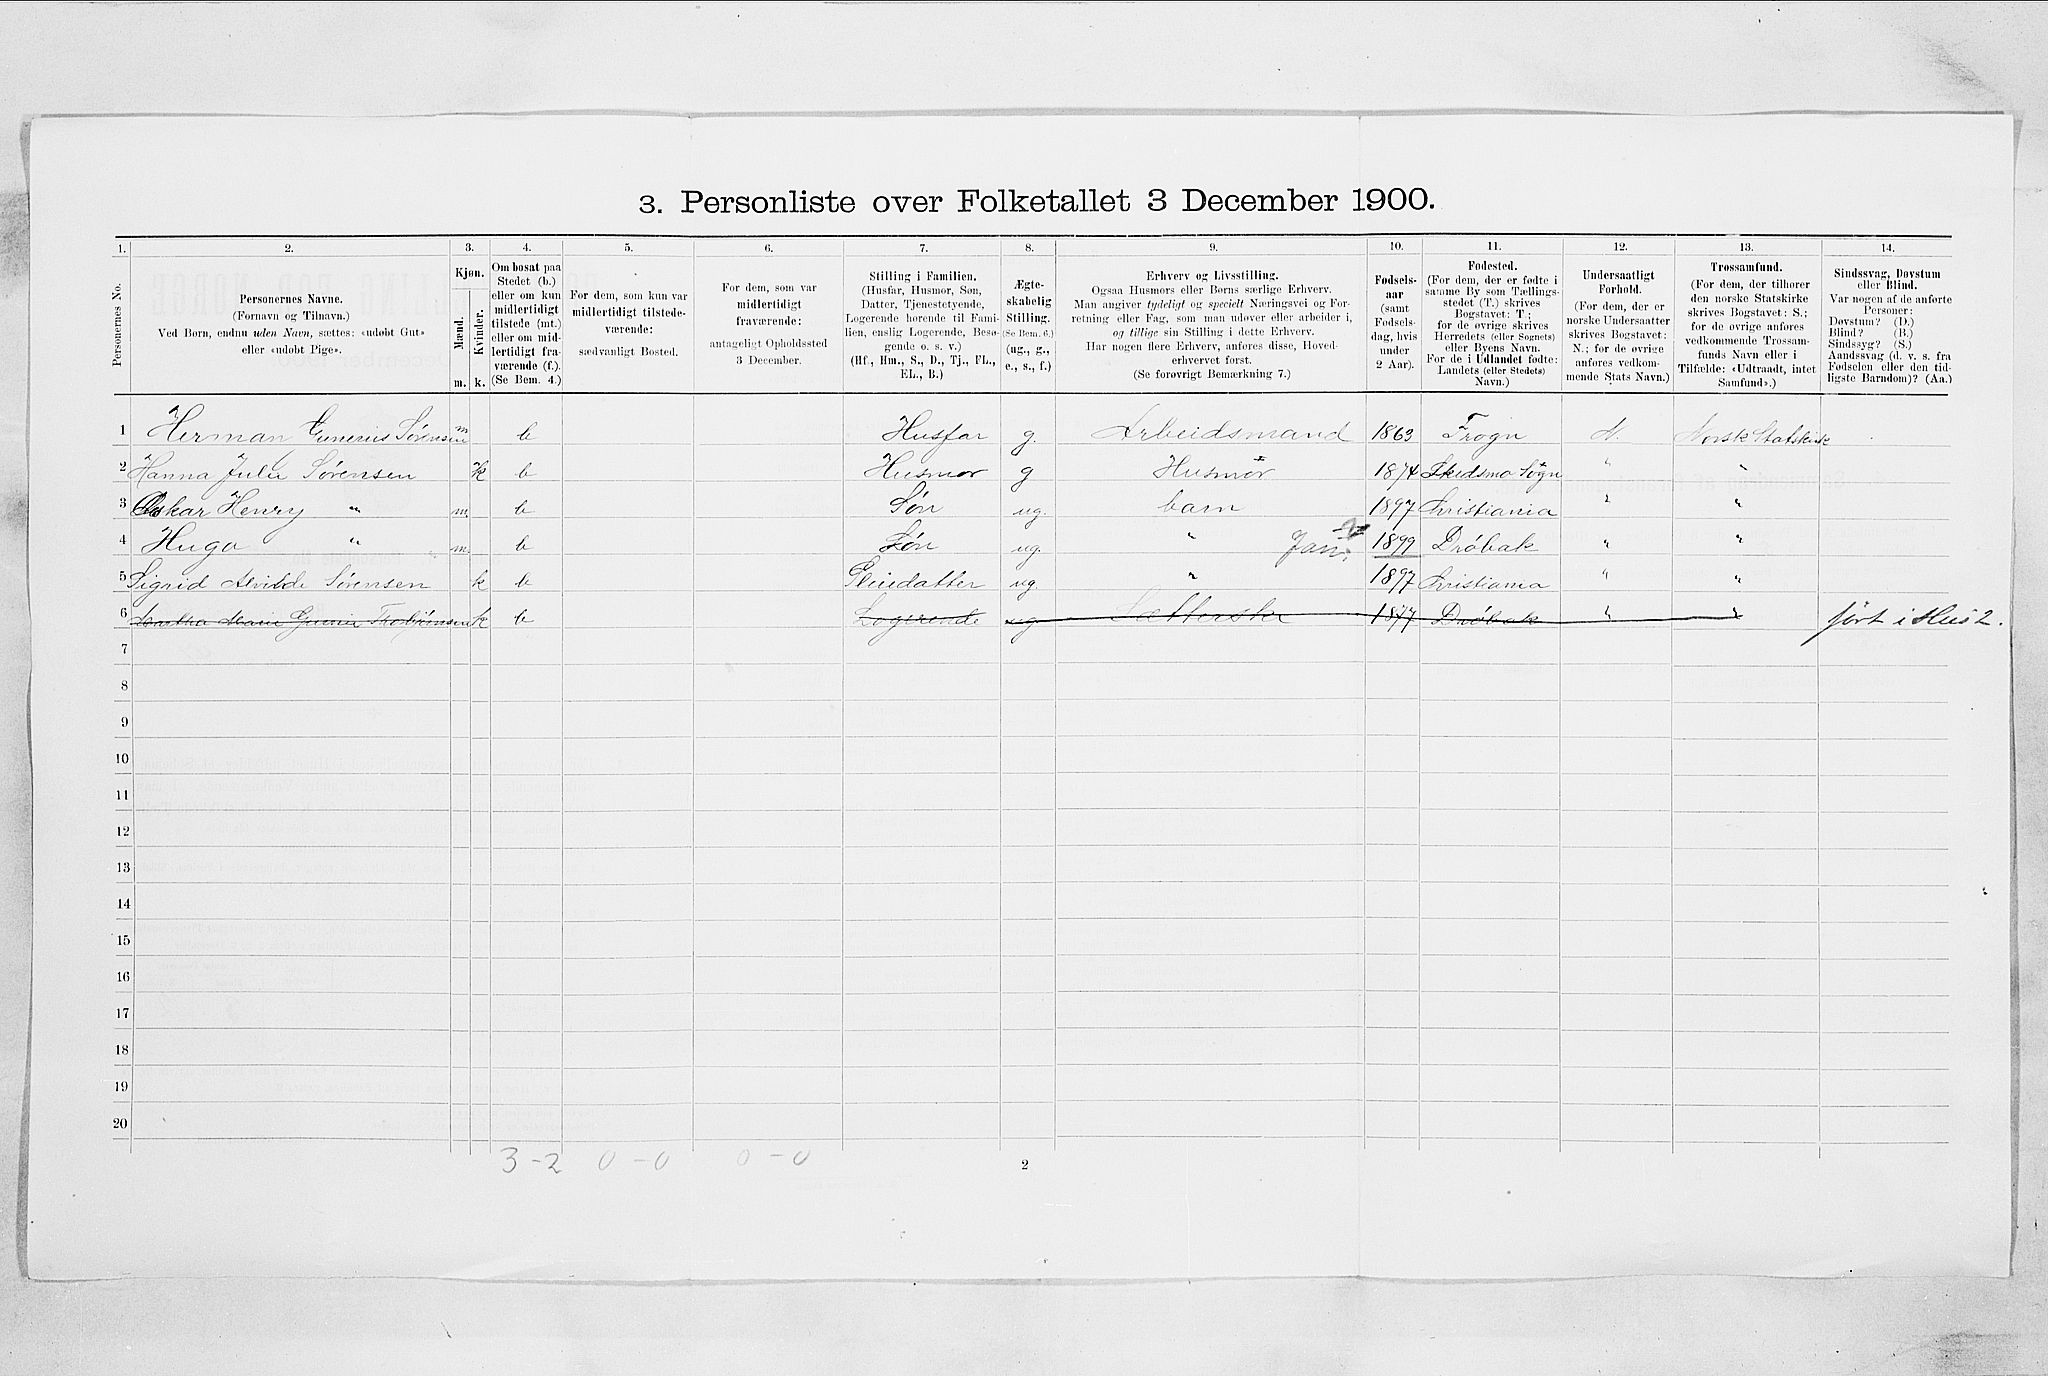 3. Personliste over Folketallet 3 December 1900.
1. 2. 3. 4. 5. 6. 7. 8. 9. 10. 11. 12. 13. 14.
Personernes No.
Personernes Navne.
(Fornavn og Tilnavn.)
Ved Børn, endnu uden Navn, sættes: «udøbt Gut»
eller «udøbt Pige».
Kjøn.
Mænd. Kvinder.
m. k.
Om bosat paa
Stedet (b.)
eller om kun
midlertidigt
tilstede (mt.)
eller om mid-
lertidigt fra-
værende (f.).
(Se Bem. 4.)
For dem, som kun var
midlertidigt tilstede-
værende:
sædvanligt Bosted.
For dem, som var
midlertidigt
fraværende:
antageligt Opholdssted
3 December.
Stilling i Familien.
(Husfar, Husmor, Søn,
Datter, Tjenestetyende,
Logerende hørende til Fami-
lien, enslig Logerende, Besø-
gende o. s. v.)
(Hf., Hm., S., D., Tj., FL.,
EL., B.)
Ægte-
skabelig
Stilling.
(Se Bem. 6.)
(ug., g.,
e., s., f.)
Erhverv og Livsstilling.
Ogsaa Husmors eller Børns særlige Erhverv.
Man angiver tydeligt og specielt Næringsvei og For-
retning eller Fag, som man udøver eller arbeider i,
og tillige sin Stilling i dette Erhverv.
Har nogen flere Erhverv, anføres disse, Hoved-
erhvervet først.
(Se forøvrigt Bemærkning 7.)
Fødsels-
aar
(samt
Fødsels-
dag, hvis
under
2 Aar).
Fødested.
(For dem, der er fødte i
samme By som Tællings-
stedet (T.) skrives
Bogstavet: T;
for de øvrige skrives
Herredets (eller Sognets)
eller Byens Navn.
For de i Udlandet fødte:
Landets (eller Stedets)
Navn.)
Undersaatligt
Forhold.
(For dem, der er
norske Undersaatter
skrives Bogstavet:
N.; for de øvrige
anføres vedkom-
mende Stats Navn.)
Trossamfund.
(For dem, der tilhører
den norske Statskirke
skrives Bogstavet: S.;
for de øvrige anføres
vedkommende Trossam-
funds Navn eller i
Tilfælde: «Udtraadt, intet
Samfund».)
Sindssvag, Døvstum
eller Blind.
Var nogen af de anførte
Personer:
Døvstum? (D.)
Blind? (B.)
Sindssyg? (S.)
Aandssvag (d. v. s. fra
Fødselen eller den tid-
ligste Barndom)? (Aa.)
1 Herman Gunerius Sørensen m b Husfar g. Arbeidsmand 1863 Frogn N. Norsk Statskirk
2 Hanna Julie Sørensen k b Husmor g Husmor 1874 Skedsmo Sogn " "
3 Oskar Henry " m. b Søn ug. barn 1897 Christiania " "
4 Hugo " m. b Søn ug. " Jan: 1899 Drøbak " "
5 Sigrid Alvilde Sørensen k b Pleiedatter ug. " 1897 Christiania " "
6 Marie k b Logerende ug 1877 Drøbak " " ført i Hus 2.
7
8
9
10
11
12
13
14
15
16
17
18
19
20
3-2 0-0 0-0 2